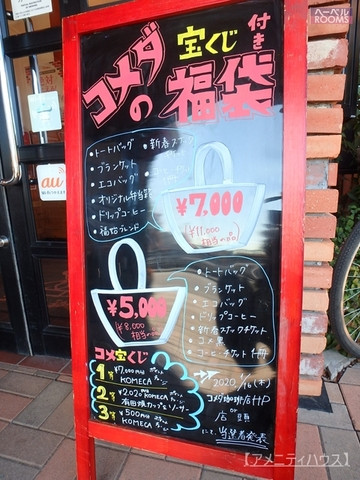 ヘーベル
ROOMS
コメダの
宝くじ付き
福袋
au
・トートバッグ
・ブランケット
・エコバッグ
・オリジナル弁当箱
・ドリップコーヒー
・福袋ブレンド
¥7,000
¥11,000
相当の品
¥5,000
¥8,000
相当の品
・トートバッグ
・ブランケット
・エコバッグ
・ドリップコーヒー
・新春スナックチケット
・コメ黒
・コーヒーチケット1冊
コメ宝くじ
1等
¥7,000
KOMECA
2等
2,020
KOMECA
有田焼カップ&ソーサー
3等
¥500
KOMECA
2020
(木)
コメダ珈琲店HP
or
店頭
にて、当選者発表
【アメニティハウス】